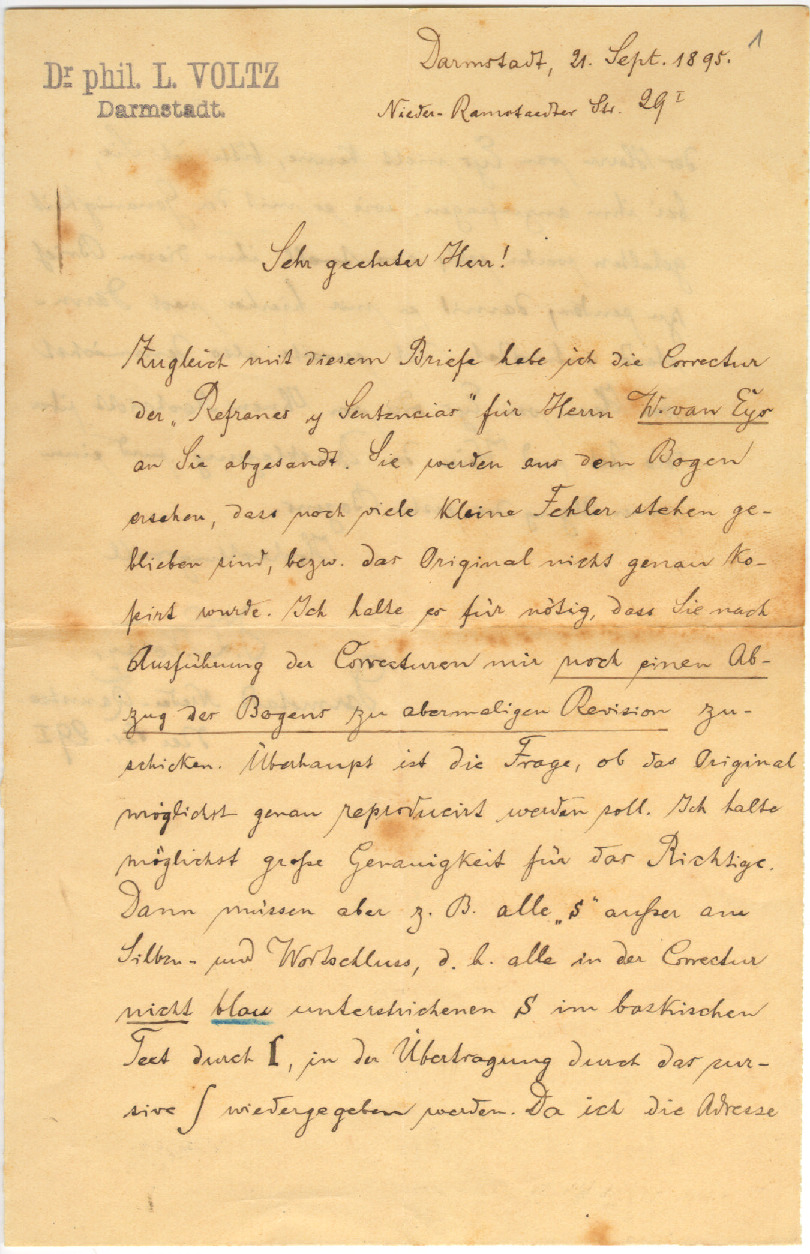 Dr phil. L. VOLTZ
Darmstadt.
1
Darmstadt, 21. Sept. 1895.
Nieder-Ramstaedter Str. 29 I
Sehr geehrter Herr!
Zugleich mit diesem Briefe habe ich die Correctur
der „Refranes y Sentencias“ für Herrn W. van Eys
an Sie abgesandt. Sie werden aus dem Bogen
ersehen, dass noch viele kleine Fehler stehen ge-
blieben sind, bezw. das Original nicht genau ko-
pirt wurde. Ich halte es für nötig, dass Sie nach
Ausführung der Correcturen mir noch einen Ab-
zug des Bogens zu abermaligen Revision zu-
schicken. Überhaupt ist die Frage, ob das Original
möglichst genau reproducirt werden soll. Ich halte
möglichst große Genauigkeit für das Richtige.
Dann müssen aber z. B. alle „s“ außer am
Silben- und Wortschluss, d. h. alle in der Correctur
nicht blau unterstrichenen s im baskischen
Text durch ſ, in der Übertragung durch das cur-
sive ʃ wiedergegeben werden. Da ich die Adresse